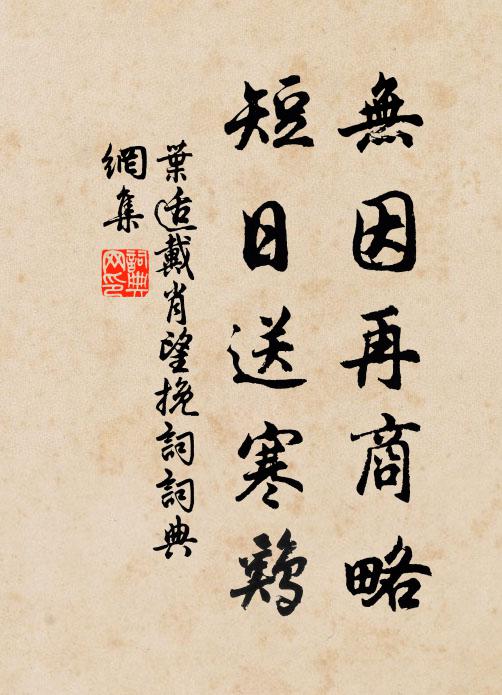 無因再商略
短日送寒鷄
葉适戴肖望挽詞詞典
網集
詞典
网印